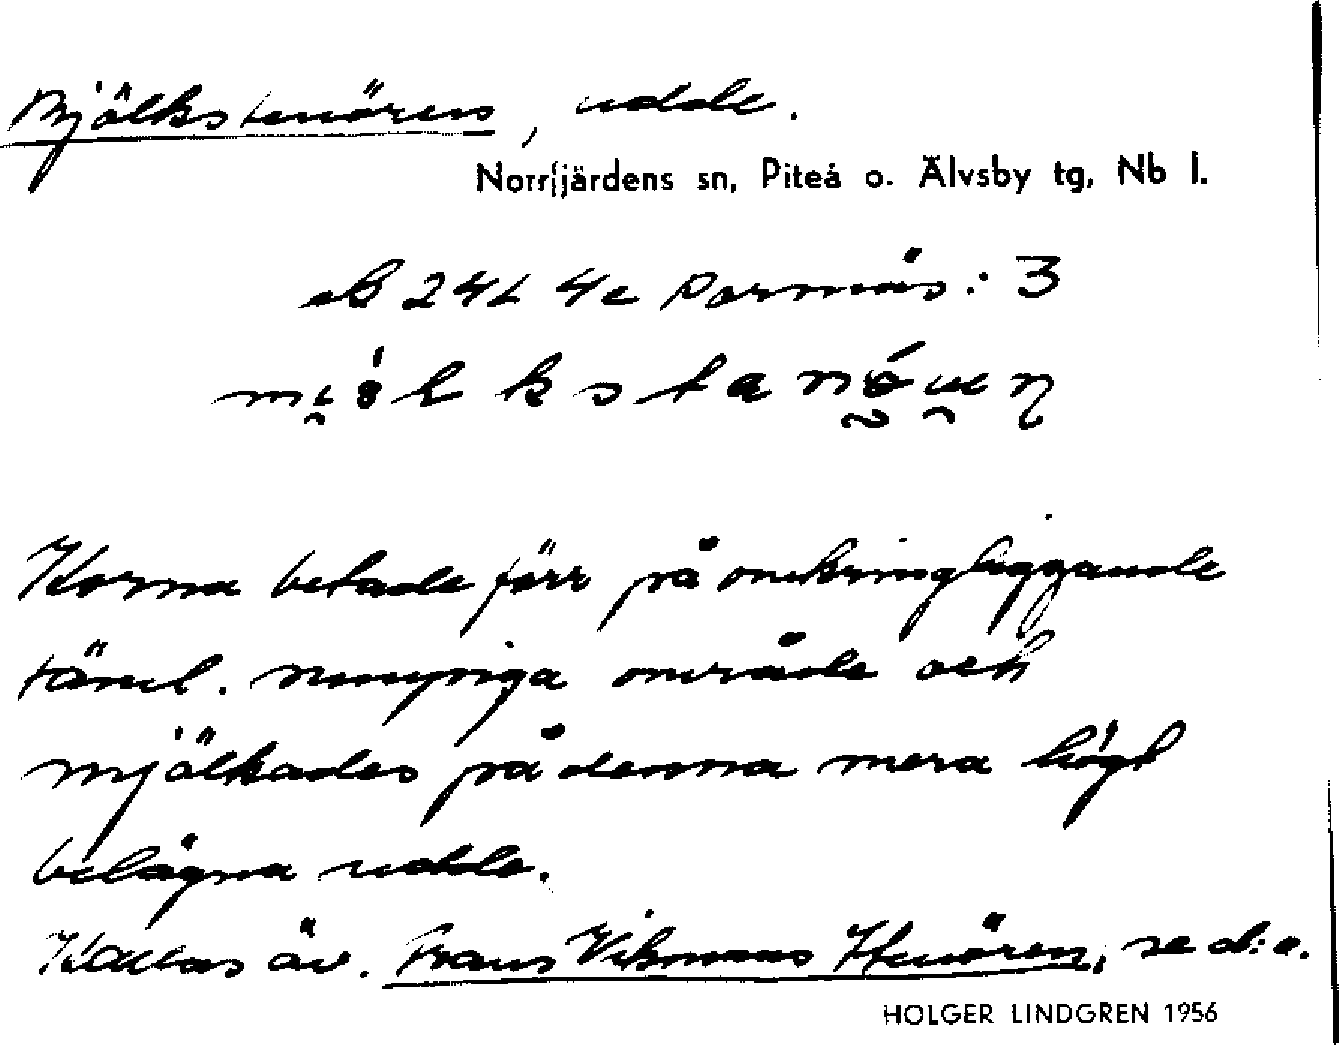 Mjölkstenören, udde.
Norrfjärdens sn, Piteå o. Älvsby tg, Nb l.
eB 24L 4e Porsnäs: 3
Korna betade förr på omkringliggande
täml. sumpiga område och
mjölkades på denna mera högt
belägna udde.
Kallas äv. Frans Vikmans Stenören, se d:o.
HOLGER LINDGREN 1956